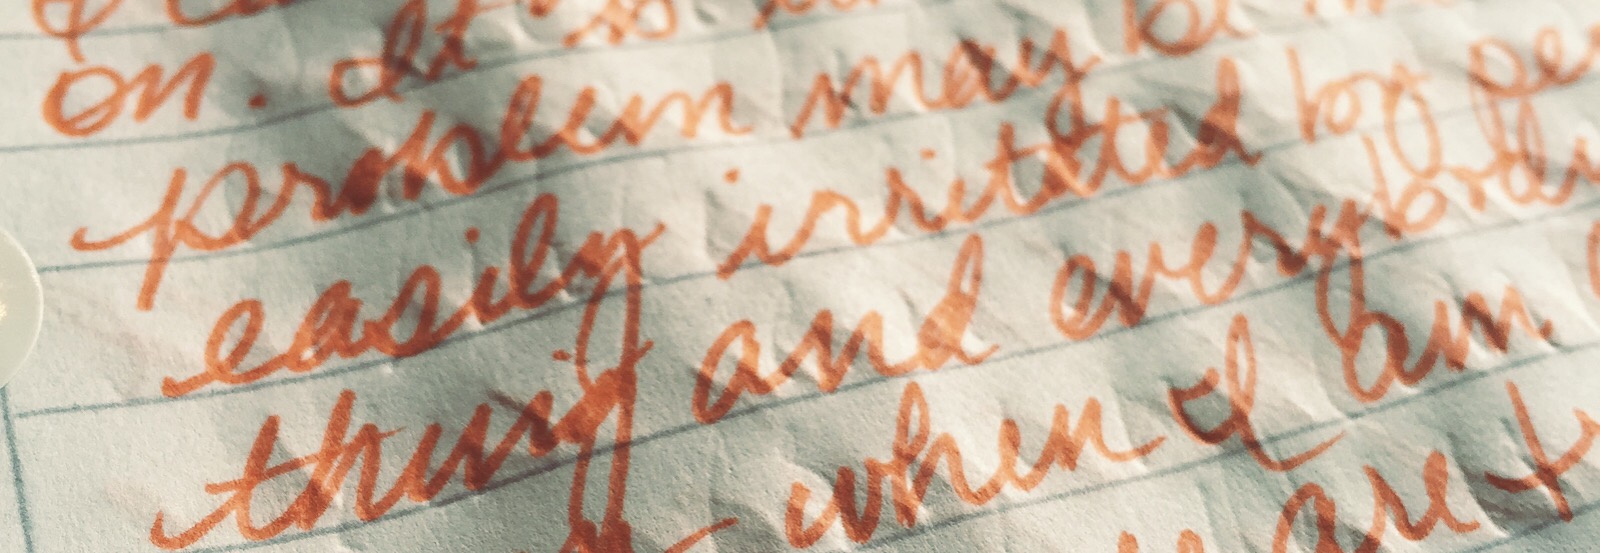 on. It is
problem may be
easily irritated by
thing and everybody
when I am
are